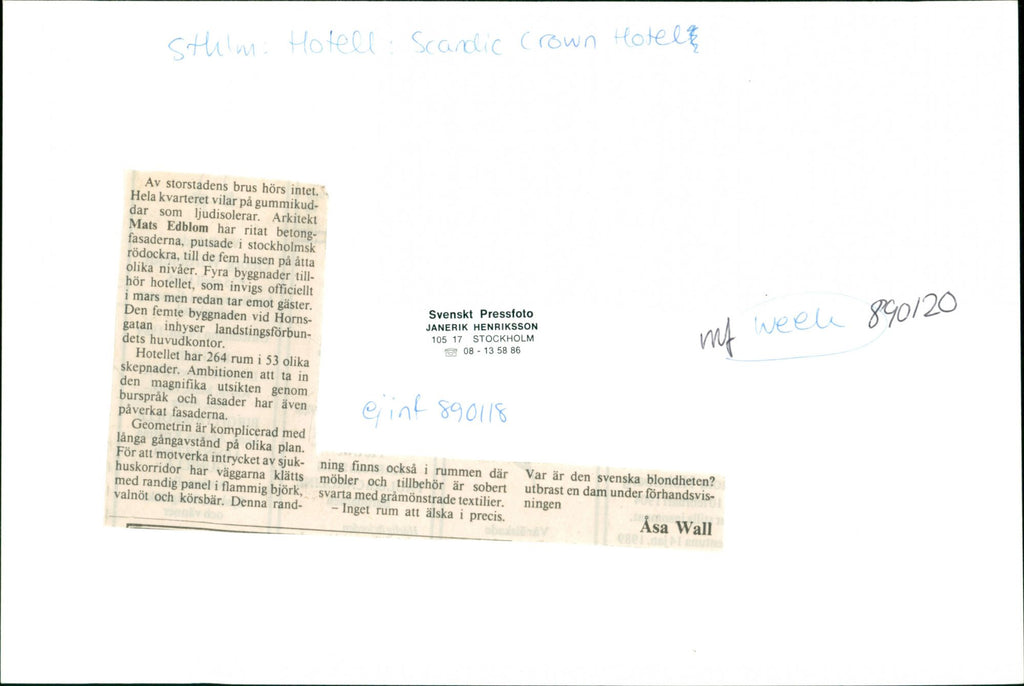 Sthlm: Hotell: Scandic Crown Hotel
Av storstadens brus hörs intet.
Hela kvarteret vilar på gummikud-
dar som ljudisolerar. Arkitekt
Mats Edblom har ritat betong-
fasaderna, putsade i stockholmsk
rödockra, till de fem husen på åtta
olika nivåer. Fyra byggnader till-
hör hotellet, som invigs officiellt
i mars men redan tar emot gäster.
Den femte byggnaden vid Horns-
gatan inhyser landstingsförbun-
dets huvudkontor.
Hotellet har 264 rum i 53 olika
skepnader. Ambitionen att ta in
den magnifika utsikten genom
burspråk och fasader har även
påverkat fasaderna.
Geometrin är komplicerad med
långa gångavstånd på olika plan.
För att motverka intrycket av sjuk-
huskorridor har väggarna klätts
med randig panel i flammig björk,
valnöt och körsbär. Denna rand-
ning finns också i rummen där
möbler och tillbehör är sobert
svarta med gråmönstrade textilier.
– Inget rum att älska i precis.
Var är den svenska blondheten?
utbrast en dam under förhandsvis-
ningen
Åsa Wall
Svenskt Pressfoto
JANERIK HENRIKSSON
105 17 STOCKHOLM
☏ 08 - 13 58 86
ej inf 890118
mf week 890120